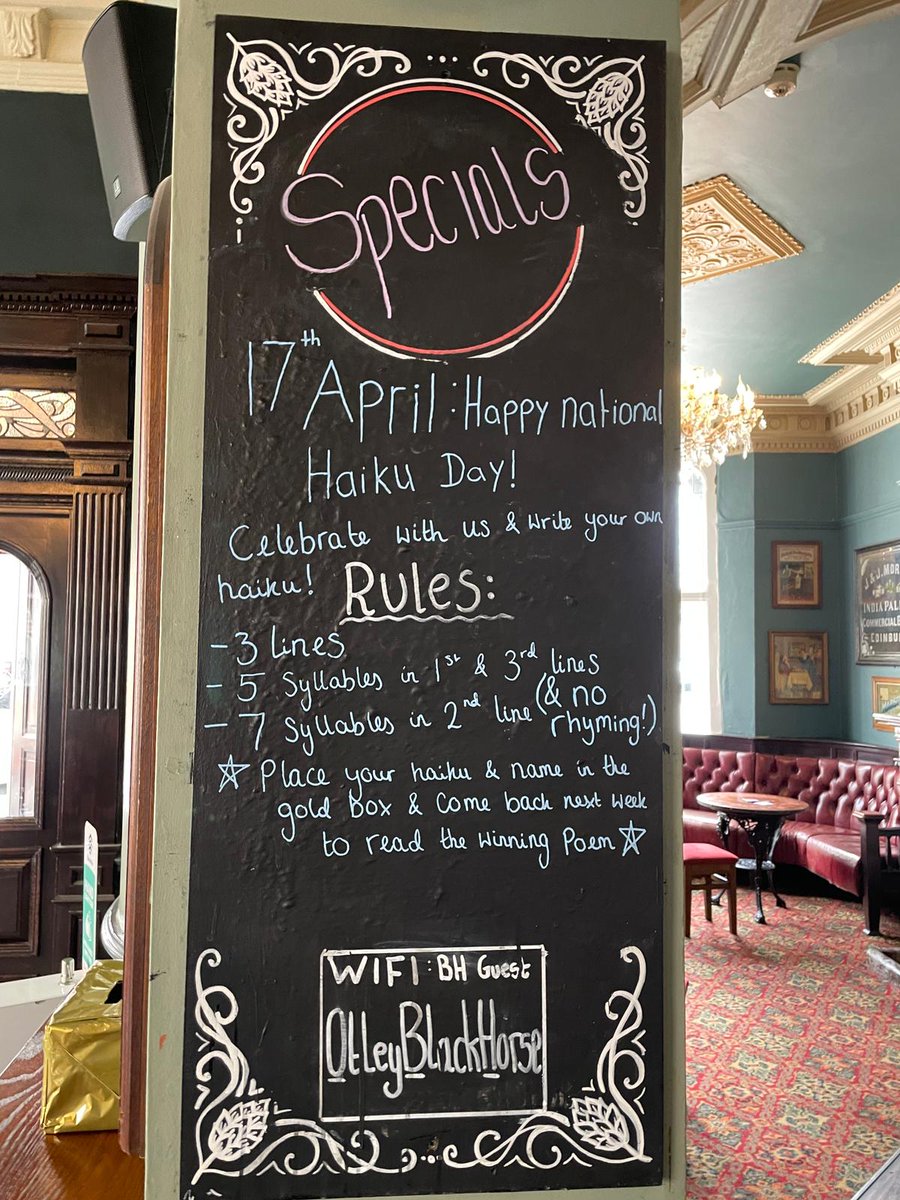 Specials
17th April: Happy national
Haiku Day!
Celebrate with us & write your own
haiku!
Rules:
- 3 lines
- 5 Syllables in 1st & 3rd lines
- 7 Syllables in 2nd line (& no rhyming!)
☆ Place your haiku & name in the
gold box & come back next week
to read the winning Poem ☆
WIFI: BH Guest
OtleyBlackHorse
J & J. MOR
INDIA PAL
COMMERCIAL
EDINBU